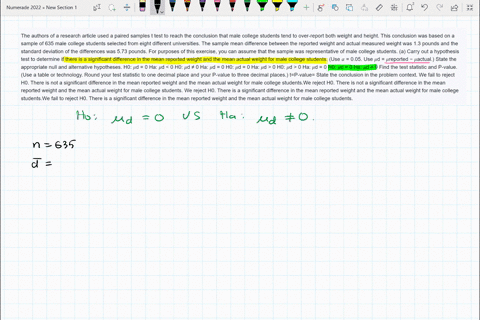 Numerade 2022 > New Section 1
The authors of a research article used a paired samples t test to reach the conclusion that male college students tend to over-report both weight and height. This conclusion was based on a
sample of 635 male college students selected from eight different universities. The sample mean difference between the reported weight and actual measured weight was 1.3 pounds and the
standard deviation of the differences was 5.73 pounds. For purposes of this exercise, you can assume that the sample was representative of male college students. (a) Carry out a hypothesis
test to determine if there is a significant difference in the mean reported weight and the mean actual weight for male college students. (Use α = 0.05. Use μd = μreported − μactual.) State the
appropriate null and alternative hypotheses. H0: μd = 0 Ha: μd < 0 H0: μd ≠ 0 Ha: μd = 0 H0: μd = 0 Ha: μd > 0 H0: μd > 0 Ha: μd = 0 H0: μd = 0 Ha: μd ≠ 0 Find the test statistic and P-value.
(Use a table or technology. Round your test statistic to one decimal place and your P-value to three decimal places.) t=P-value= State the conclusion in the problem context. We fail to reject
H0. There is not a significant difference in the mean reported weight and the mean actual weight for male college students.We reject H0. There is not a significant difference in the mean
reported weight and the mean actual weight for male college students. We reject H0. There is a significant difference in the mean reported weight and the mean actual weight for male college
students.We fail to reject H0. There is a significant difference in the mean reported weight and the mean actual weight for male college students.
Ho: μd = 0 VS Ha: μd ≠ 0.
n = 635
d̅ =